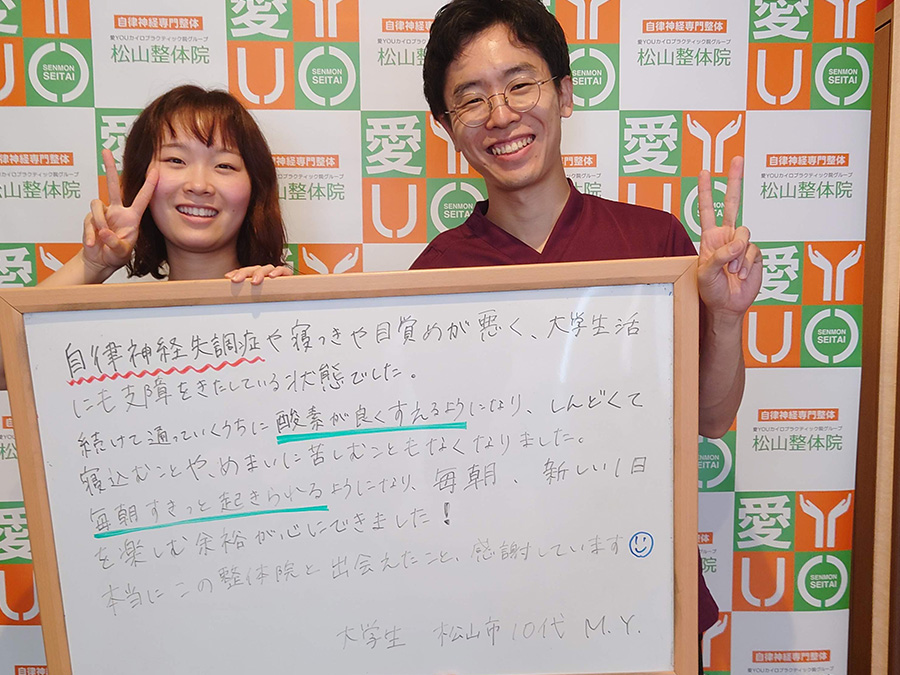 自律神経専門整体
愛YOUカイロプラクティック院グループ
松山整体院
愛
YOU
SENMON SEITAI
自律神経失調症や寝つきや目覚めが悪く、大学生活
にも支障をきたしている状態でした。
続けて通っていくうちに酸素が良くすえるようになり、しんどくて
寝込むことや、めまいに苦しむこともなくなりました。
毎朝すきっと起きられるようになり、毎朝、新しい1日
を楽しむ余裕が心にできました!
本当にこの整体院と出会えたこと、感謝しています
大学生 松山市 10代 M.Y.